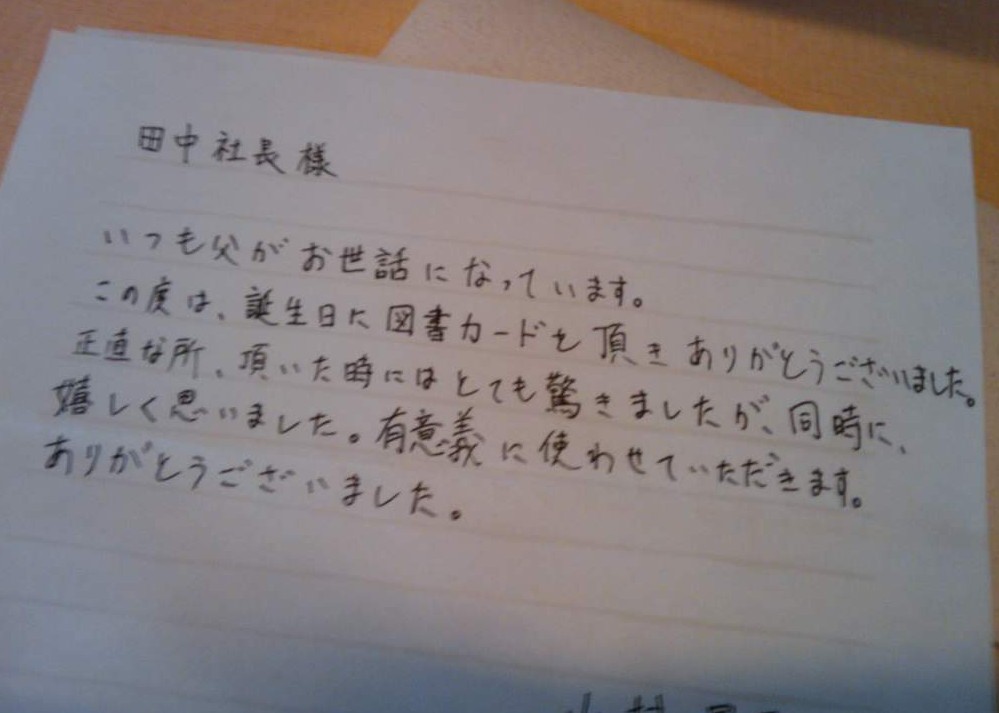 田中社長様
いつも父がお世話になっています。
この度は、誕生日に図書カードを頂きありがとうございました。
正直な所、頂いた時にはとても驚きましたが、同時に、
嬉しく思いました。有意義に使わせていただきます。
ありがとうございました。